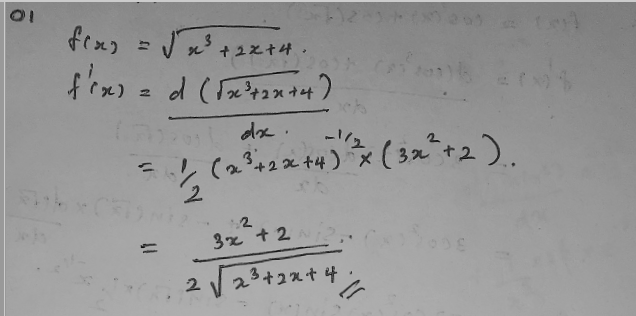 01
f(x) = √(x³ + 2x + 4).
f'(x) = d (√(x³+2x+4))
dx.
= 1/2 (x³+2x+4)^(-1/2) × (3x²+2).
= 3x² + 2
2 √(x³+2x+4).//